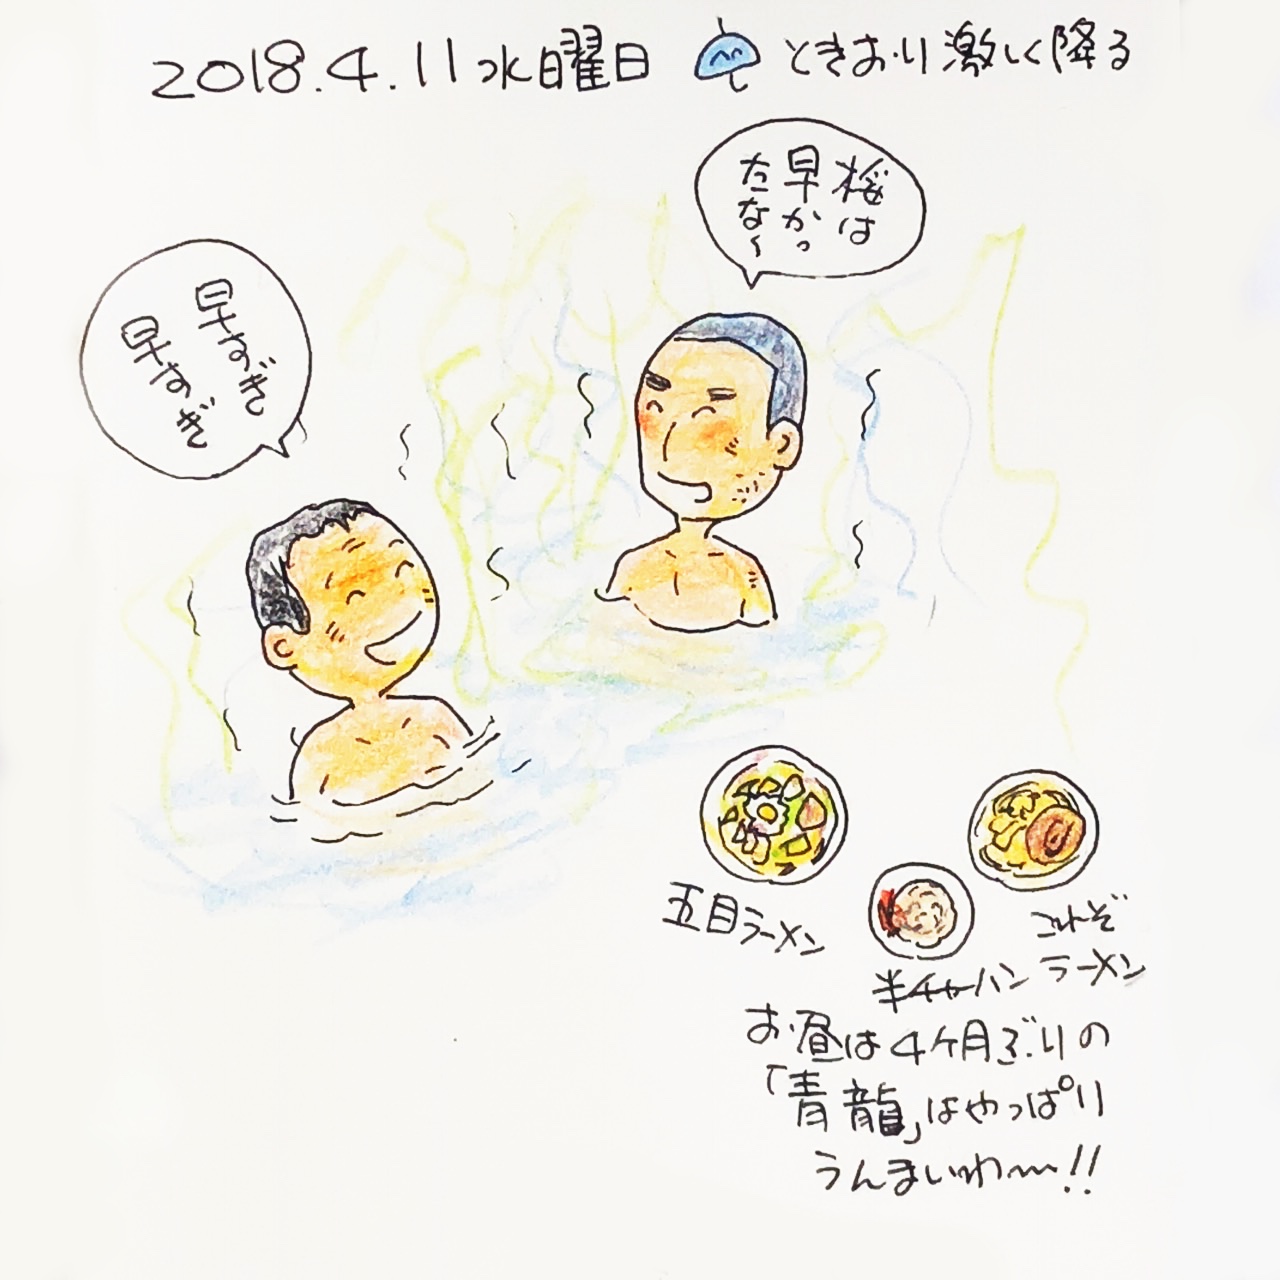 2018.4.11水曜日 ときおり激しく降る
桜は
早かっ
たな〜
早すぎ
早すぎ
五目ラーメン
半チャーハン
ラーメン
お昼は4ケ月ぶりの
「青龍」はやっぱり
うんまいわ〜!!